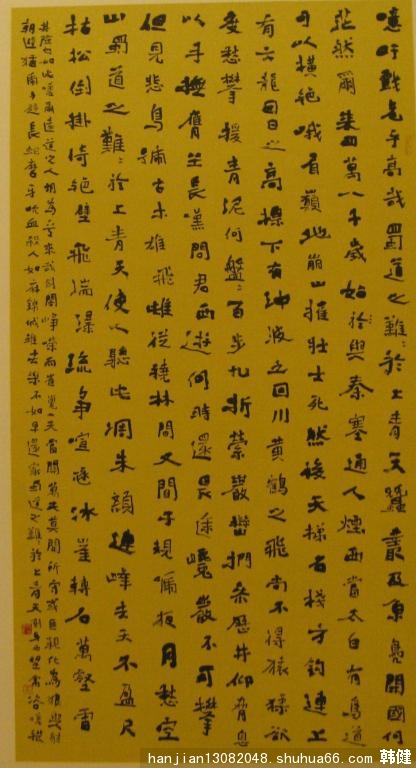 噫吁戲危乎高哉蜀道之難々於上青天蠶叢及魚鳧開國何
茫然爾來四萬八千歲始於與秦塞通人煙西當太白有鳥道
可以橫絕峨眉巔地崩山摧壯士死然後天梯石棧方鈎連上
有六龍回日之高標下有沖波之回川黃鶴之飛尚不得猿猱欲
度愁攀援青泥何盤々百步九折縈巖巒捫參歷井仰脅息
以手撫膺坐長嘆問君西遊何時還畏途巉巖不可攀
但見悲鳥號古木雄飛雌從繞林間又聞子規啼夜月愁空
山蜀道之難々於上青天使人聽此凋朱顏連峰去天不盈尺
枯松倒掛倚絕壁飛湍瀑流爭喧豗砯崖轉石萬壑雷
其險也如此嗟爾遠道之人胡為乎來哉劍閣崢嶸而崔嵬一夫當關萬夫莫開所守或匪親化為狼與豺
朝避猛虎夕避長蛇磨牙吮血殺人如麻錦城雖云樂不如早還家蜀道之難於上青天側身西望常咨嗟
hanjian13082048.shuhua66.com 韩健